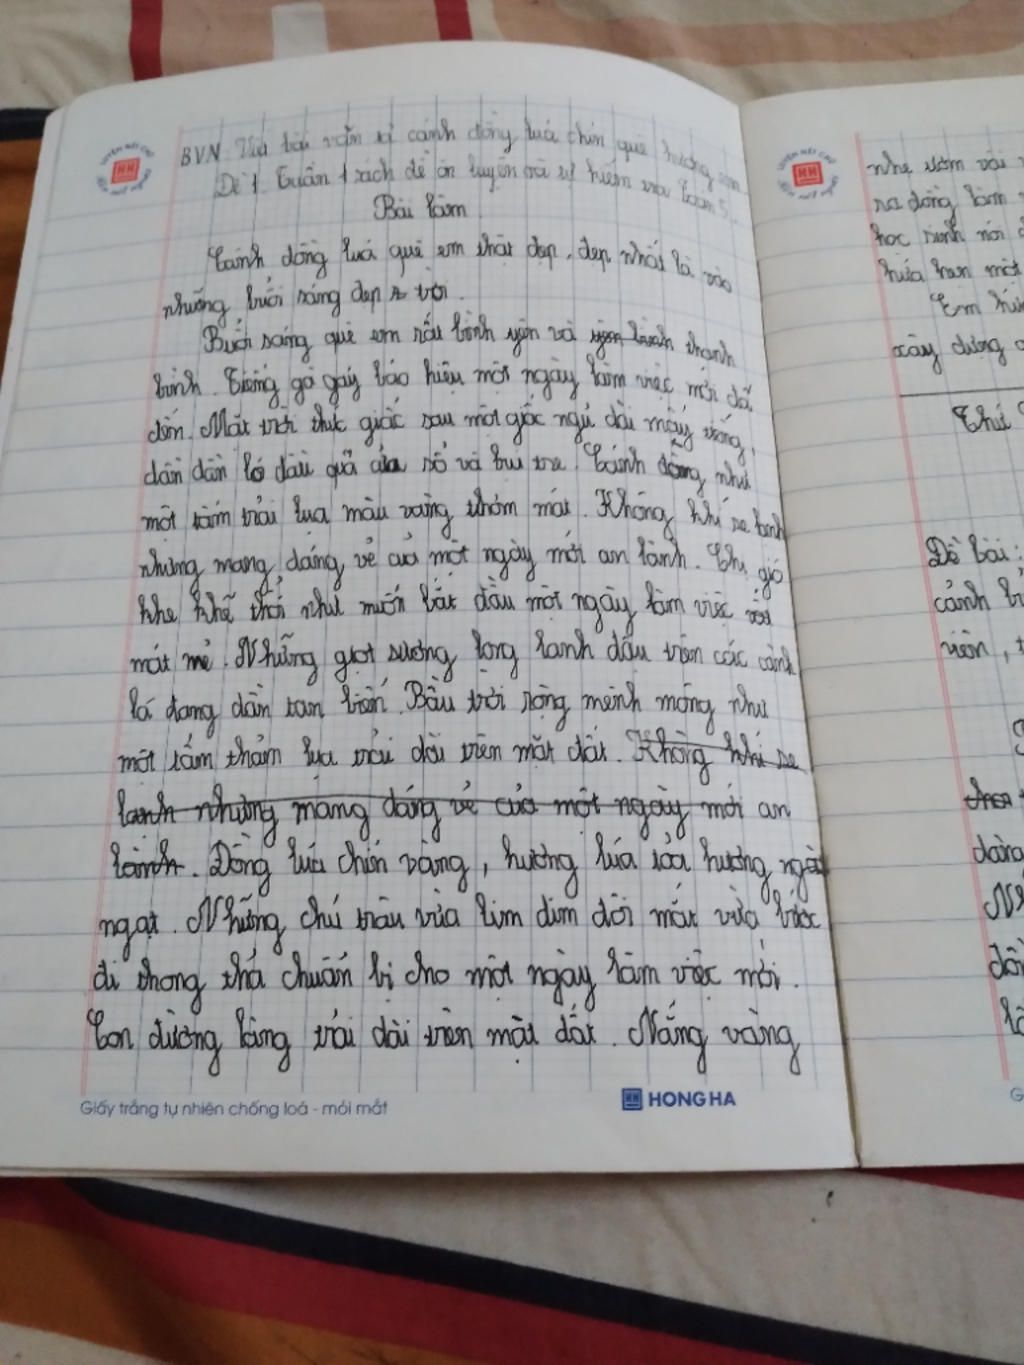 BVN: Viết bài văn tả cánh đồng lúa chín quê hương em
Đề 1. Tuần 1 sách đề ôn luyện và tự kiểm tra toán 5.
Bài làm
Cánh đồng lúa quê em thật đẹp, đẹp nhất là vào
những buổi sáng đẹp trời.
Buổi sáng quê em rất bình yên và yên bình thanh
bình. Tiếng gà gáy báo hiệu một ngày làm việc mới đã
đến. Mặt trời thức giấc sau một giấc ngủ dài mây trắng,
dần dần ló đầu quả của sổ và luỹ tre. Cánh đồng như
một tấm trải lụa màu vàng thơm mát. Không khí se lạnh
nhưng mang dáng vẻ của một ngày mới an lành. Chị gió
khe khẽ thổi như muốn bắt đầu một ngày làm việc
mát mẻ. Những giọt sương long lanh đậu trên các cành
lá đang dần tan biến. Bầu trời rộng mênh mông như
một tấm thảm lụa trải dài trên mặt đất. Không khí se
lạnh nhưng mang dáng vẻ của một ngày mới an
lành. Đồng lúa chín vàng, hương lúa tỏa hương ngào
ngạt. Những chú trâu vừa lim dim đôi mắt vừa bước
đi thong thả chuẩn bị cho một ngày làm việc mới.
Con đường làng trải dài trên mặt đất. Nắng vàng
Giấy trắng tự nhiên chống loá - mỏi mắt
HONG HA
LUYỆN NÉT CHỮ
HH
nhẹ ươm vài
ra đồng làm
học sinh nói
hứa hẹn một
Em
xây dựng
Thứ
Đề bài:
cảnh
viên,